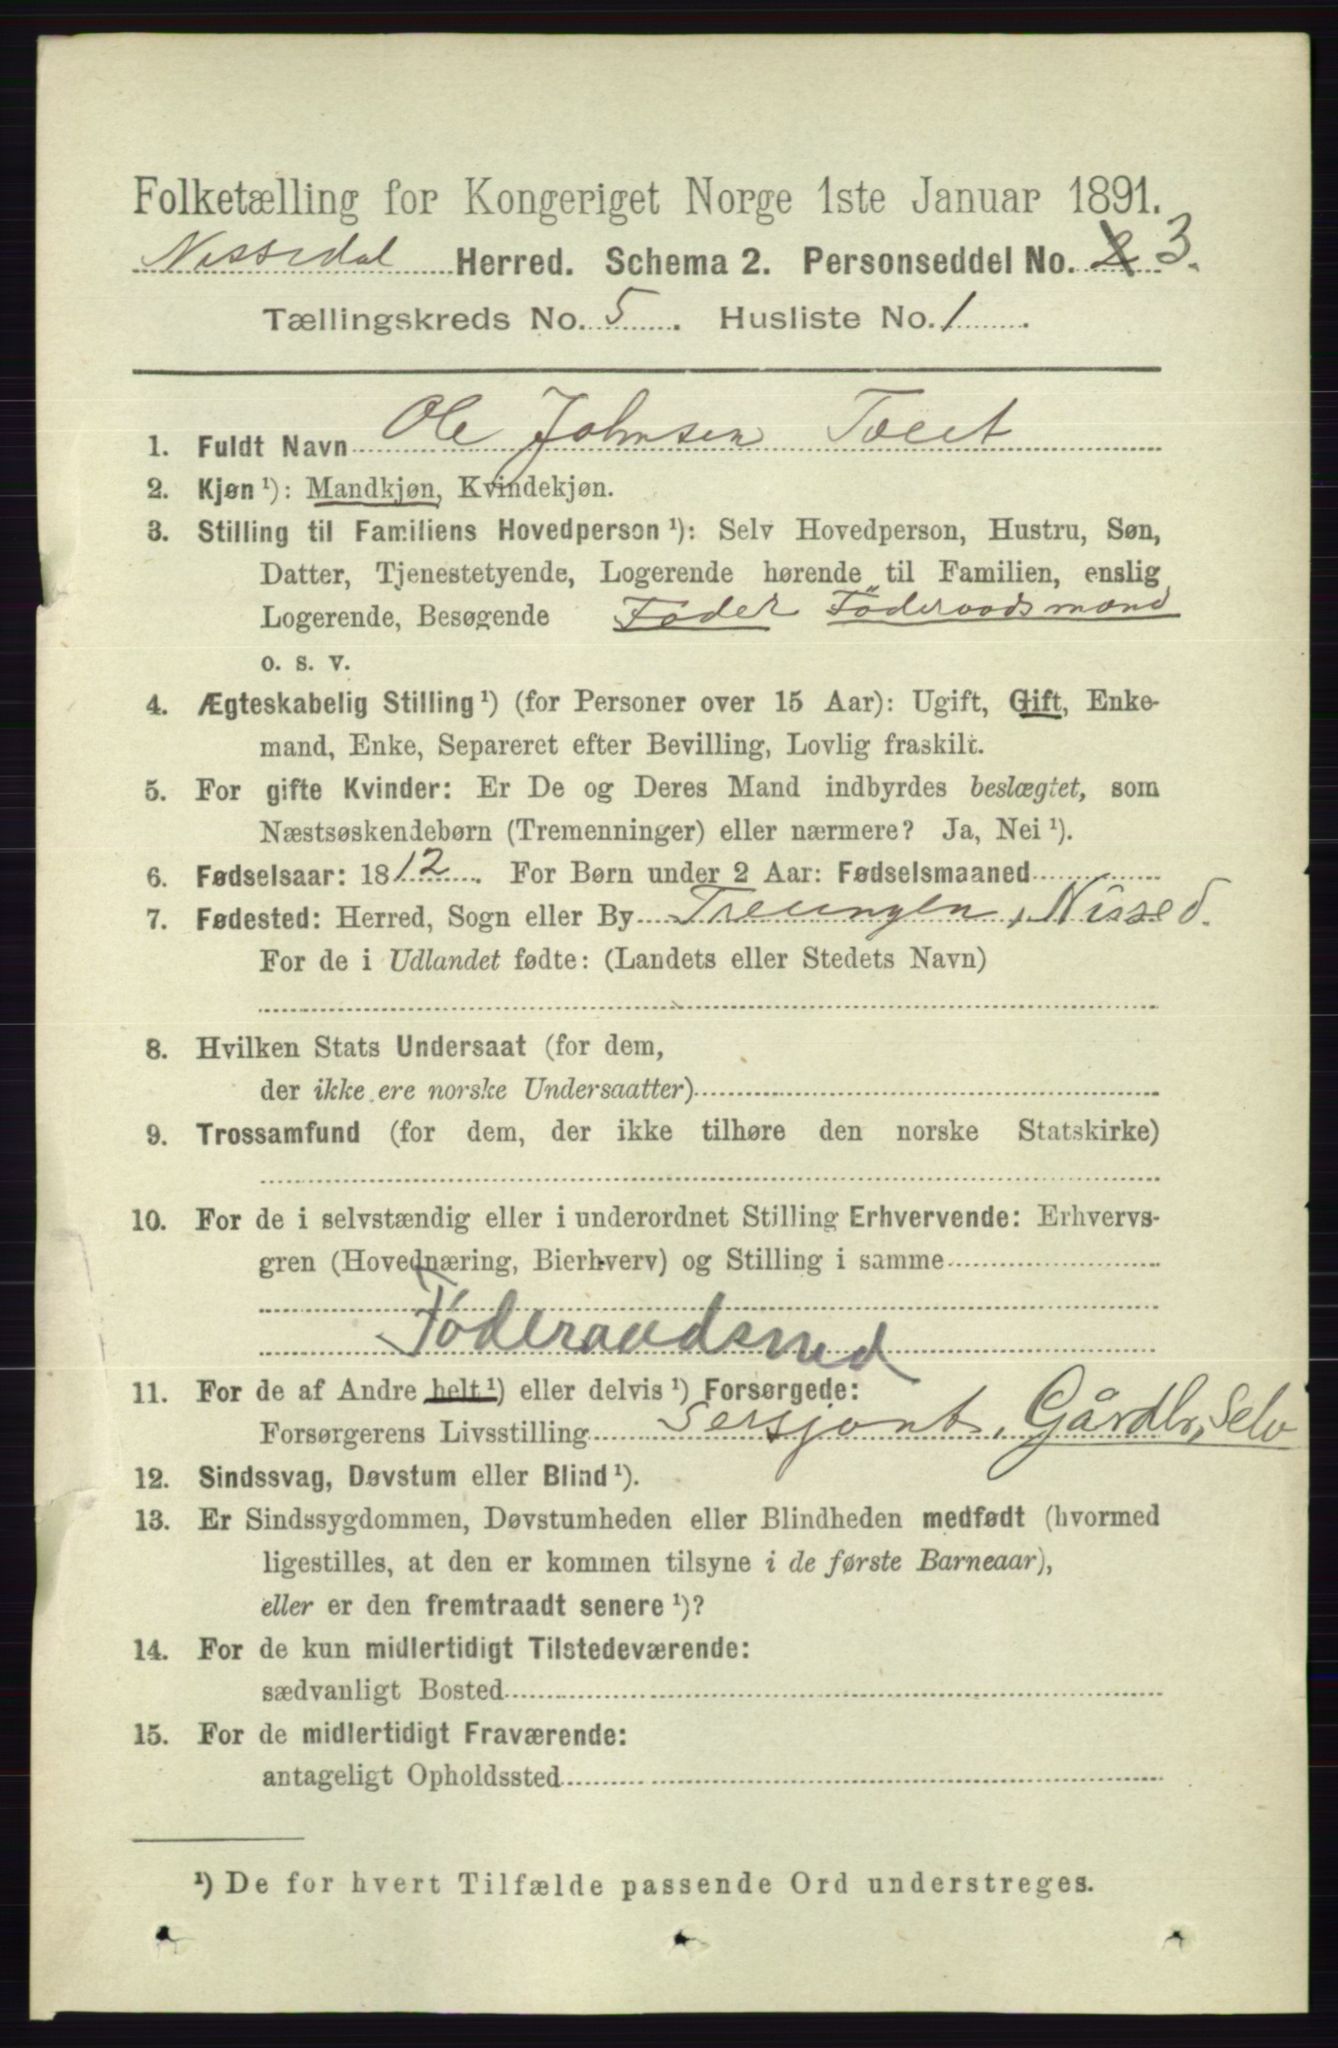 Folketælling for Kongeriget Norge 1ste Januar 1891.
Nissedal Herred. Schema 2. Personseddel No. 2 3.
Tællingskreds No. 5. Husliste No. 1.
1. Fuldt Navn Ole Johnsen Tveit
2. Kjøn ¹): Mandkjøn, Kvindekjøn.
3. Stilling til Familiens Hovedperson ¹): Selv Hovedperson, Hustru, Søn,
Datter, Tjenestetyende, Logerende hørende til Familien, enslig
Logerende, Besøgende Fader Föderaadsmand
o. s. v.
4. Ægteskabelig Stilling ¹) (for Personer over 15 Aar): Ugift, Gift, Enke-
mand, Enke, Separeret efter Bevilling, Lovlig fraskilt.
5. For gifte Kvinder: Er De og Deres Mand indbyrdes beslægtet, som
Næstsøskendebørn (Tremenninger) eller nærmere? Ja, Nei ¹).
6. Fødselsaar: 1812. For Børn under 2 Aar: Fødselsmaaned
7. Fødested: Herred, Sogn eller By Treungen, Nissed.
For de i Udlandet fødte: (Landets eller Stedets Navn)
8. Hvilken Stats Undersaat (for dem,
der ikke ere norske Undersaatter)
9. Trossamfund (for dem, der ikke tilhøre den norske Statskirke)
10. For de i selvstændig eller i underordnet Stilling Erhvervende: Erhvervs-
gren (Hovednæring, Bierhverv) og Stilling i samme
Föderaadsmd
11. For de af Andre helt ¹) eller delvis ¹) Forsørgede:
Forsørgerens Livsstilling Sersjant, Gårdbr, Selv
12. Sindssvag, Døvstum eller Blind ¹).
13. Er Sindssygdommen, Døvstumheden eller Blindheden medfødt (hvormed
ligestilles, at den er kommen tilsyne i de første Barneaar),
eller er den fremtraadt senere ¹)?
14. For de kun midlertidigt Tilstedeværende:
sædvanligt Bosted
15. For de midlertidigt Fraværende:
antageligt Opholdssted
¹) De for hvert Tilfælde passende Ord understreges.